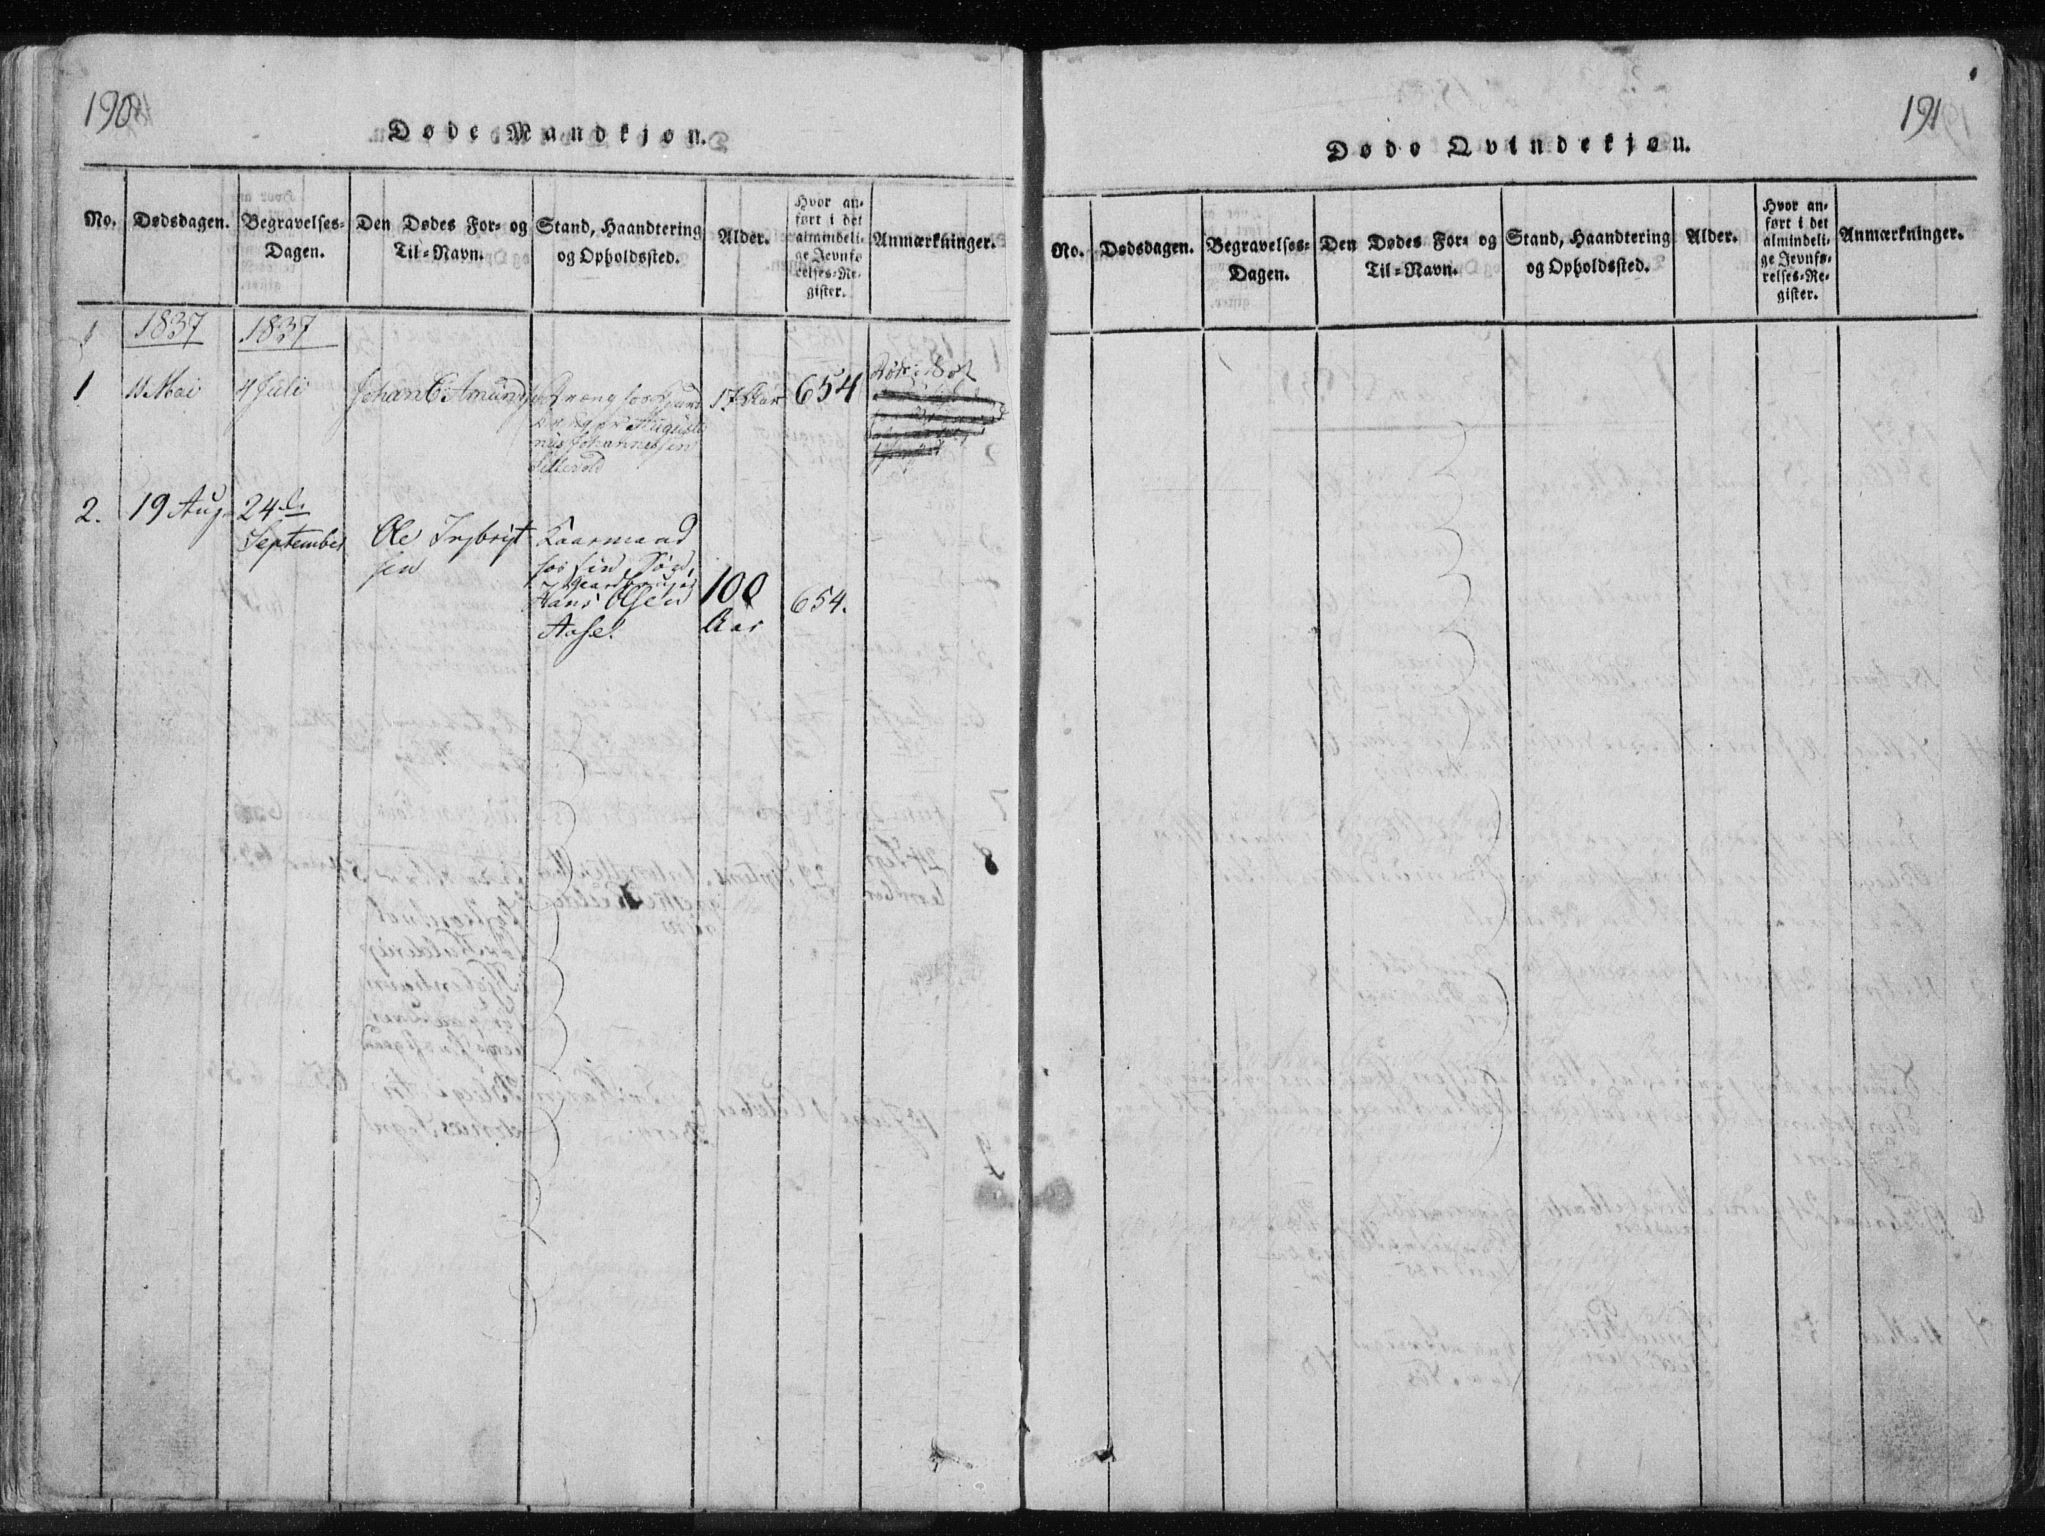 190
Døde Mandkjøn.
No.
Dødsdagen.
Begravelses-
Dagen.
Den Dødes For- og
Til-Navn.
Stand, Haandtering
og Opholdssted.
Alder.
Hvor an-
ført i det
almindeli-
ge Jevnfø-
relses-Re-
gister.
Anmærkninger.
1837
1837
1
11 Mai
4 Juli
Johan C Amund
Dreng hos
Johannessen
17 Aar
654
2.
19 Aug.
24de
September
Ole Ingbrigt
sen
Kaarmand
hos sin Søn,
Gaardbruger
Hans Olsen
Aasel.
100
Aar
654.
191
Døde Qvindekjøn.
No.
Dødsdagen.
Begravelses-
Dagen.
Den Dødes For- og
Til-Navn.
Stand, Haandtering
og Opholdssted.
Alder.
Hvor an-
ført i det
almindeli-
ge Jevnfø-
relses-Re-
gister.
Anmærkninger.